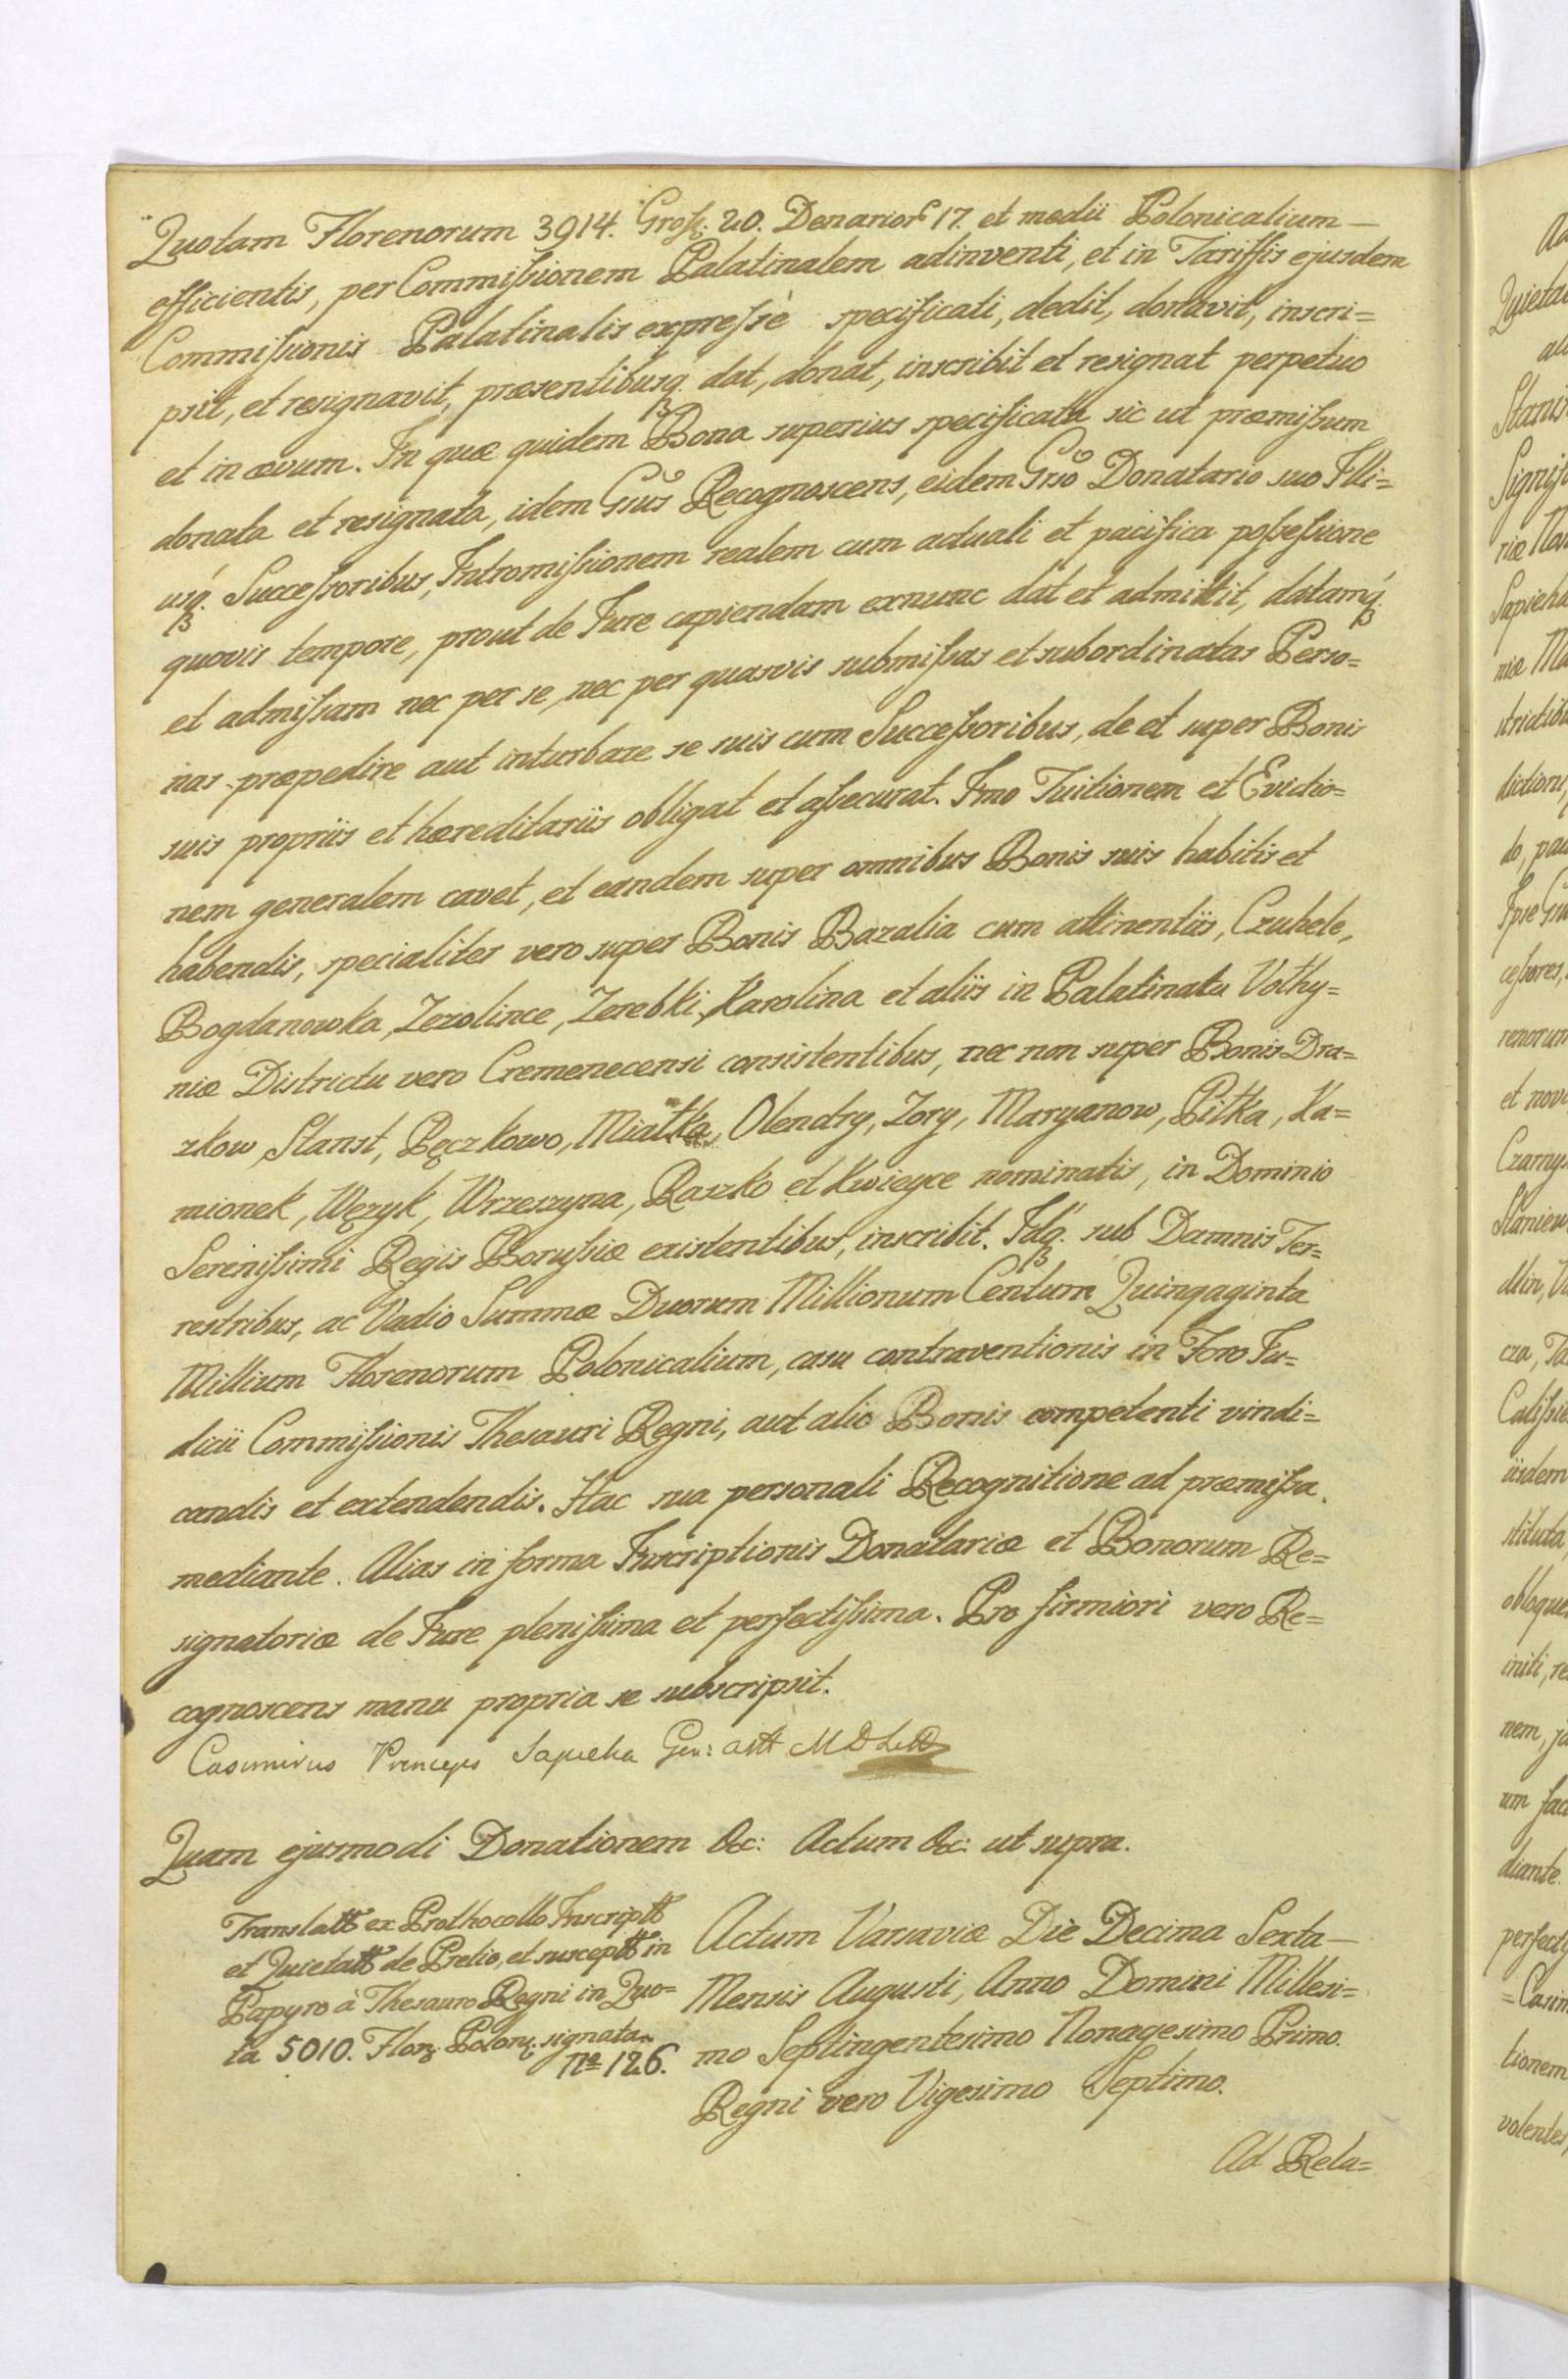 Quotam Florenorum 3914. Groſs: 20. Denarior 17. et medii Polonicalium —
efficientis, per Commiſsionem Palatinalem adinventi, et in Tariffis ejusdem
Commiſsionis Palatinalis expreſsè specificati, dedit, donavit, inscri=
psit, et resignavit, præsentibusq. dat, donat, inscribit et resignat perpetuo
et in ævum. In quæ quidem Bona superius specificata sic ut præmiſsum
donata et resignata, idem Gsus Recognoscens, eidem Gsso Donatario suo Illi=
usq. Succeſsoribus, Intromiſsionem realem cum actuali et pacifica poſseſsione
quovis tempore, prout de Jure capiendam exnunc dat et admittit, datamq.
et admiſsam nec per se, nec per quasvis submiſsas et subordinatas Perso=
nas præpedire aut inturbare se suis cum Succeſsoribus, de et super Bonis
suis propriis et hæreditariis obligat et aſsecurat. Imo Tuitionem et Evictio=
nem generalem cavet, et eandem super omnibus Bonis suis habitis et
habendis, specialiter vero super Bonis Bazalia cum attinentiis, Czuhele,
Bogdanowka, Zezolince, Zerebki, Karolina et aliis in Palatinatu Volhy=
niæ Districtu vero Cremenecensi consistentibus, nec non super Bonis Dra=
zkow, Stanst, Pęczkowo, Miałka, Olendry, Zory, Maryanow, Piłka, Ka=
mionek, Węzyk, Wrzeszyna, Raszko et Kwieyce nominatis, in Dominio
Sereniſsimi Regis Boruſsiæ existentibus, inscribit. Idq. sub Damnis Ter=
restribus, ac Vadio Summæ Duorum Millionum Centum Quinqaginta
Millium Florenorum Polonicalium, casu contraventionis in Foro Ju=
dicii Commiſsionis Thesauri Regni, aut alio Bonis competenti vindi=
candis et extendendis. Hac sua personali Recognitione ad præmiſsa
mediante. Alias in forma Inscriptionis Donatariæ et Bonorum Re=
signatoriæ de Jure pleniſsima et perfectiſsima. Pro firmiori vero Re=
cognoscens manu propria se subscripsit.
Casimirus Princeps Sapieha Gen: Art MDLitt
Quam ejusmodi Donationem &c: Actum &c: ut supra.
Translatt ex Prothocollo Inscriptt
et Quietatt de Pretio, et susceptt in
Papyro à Thesauro Regni in Quo=
ta 5010. Flor. Polon. signata
No 126.
Actum Varsaviæ Die Decima Sexta —
Mensis Augusti, Anno Domini Millesi=
mo Septingentesimo Nonagesimo Primo.
Regni vero Vigesimo Septimo.
Ad Rela=